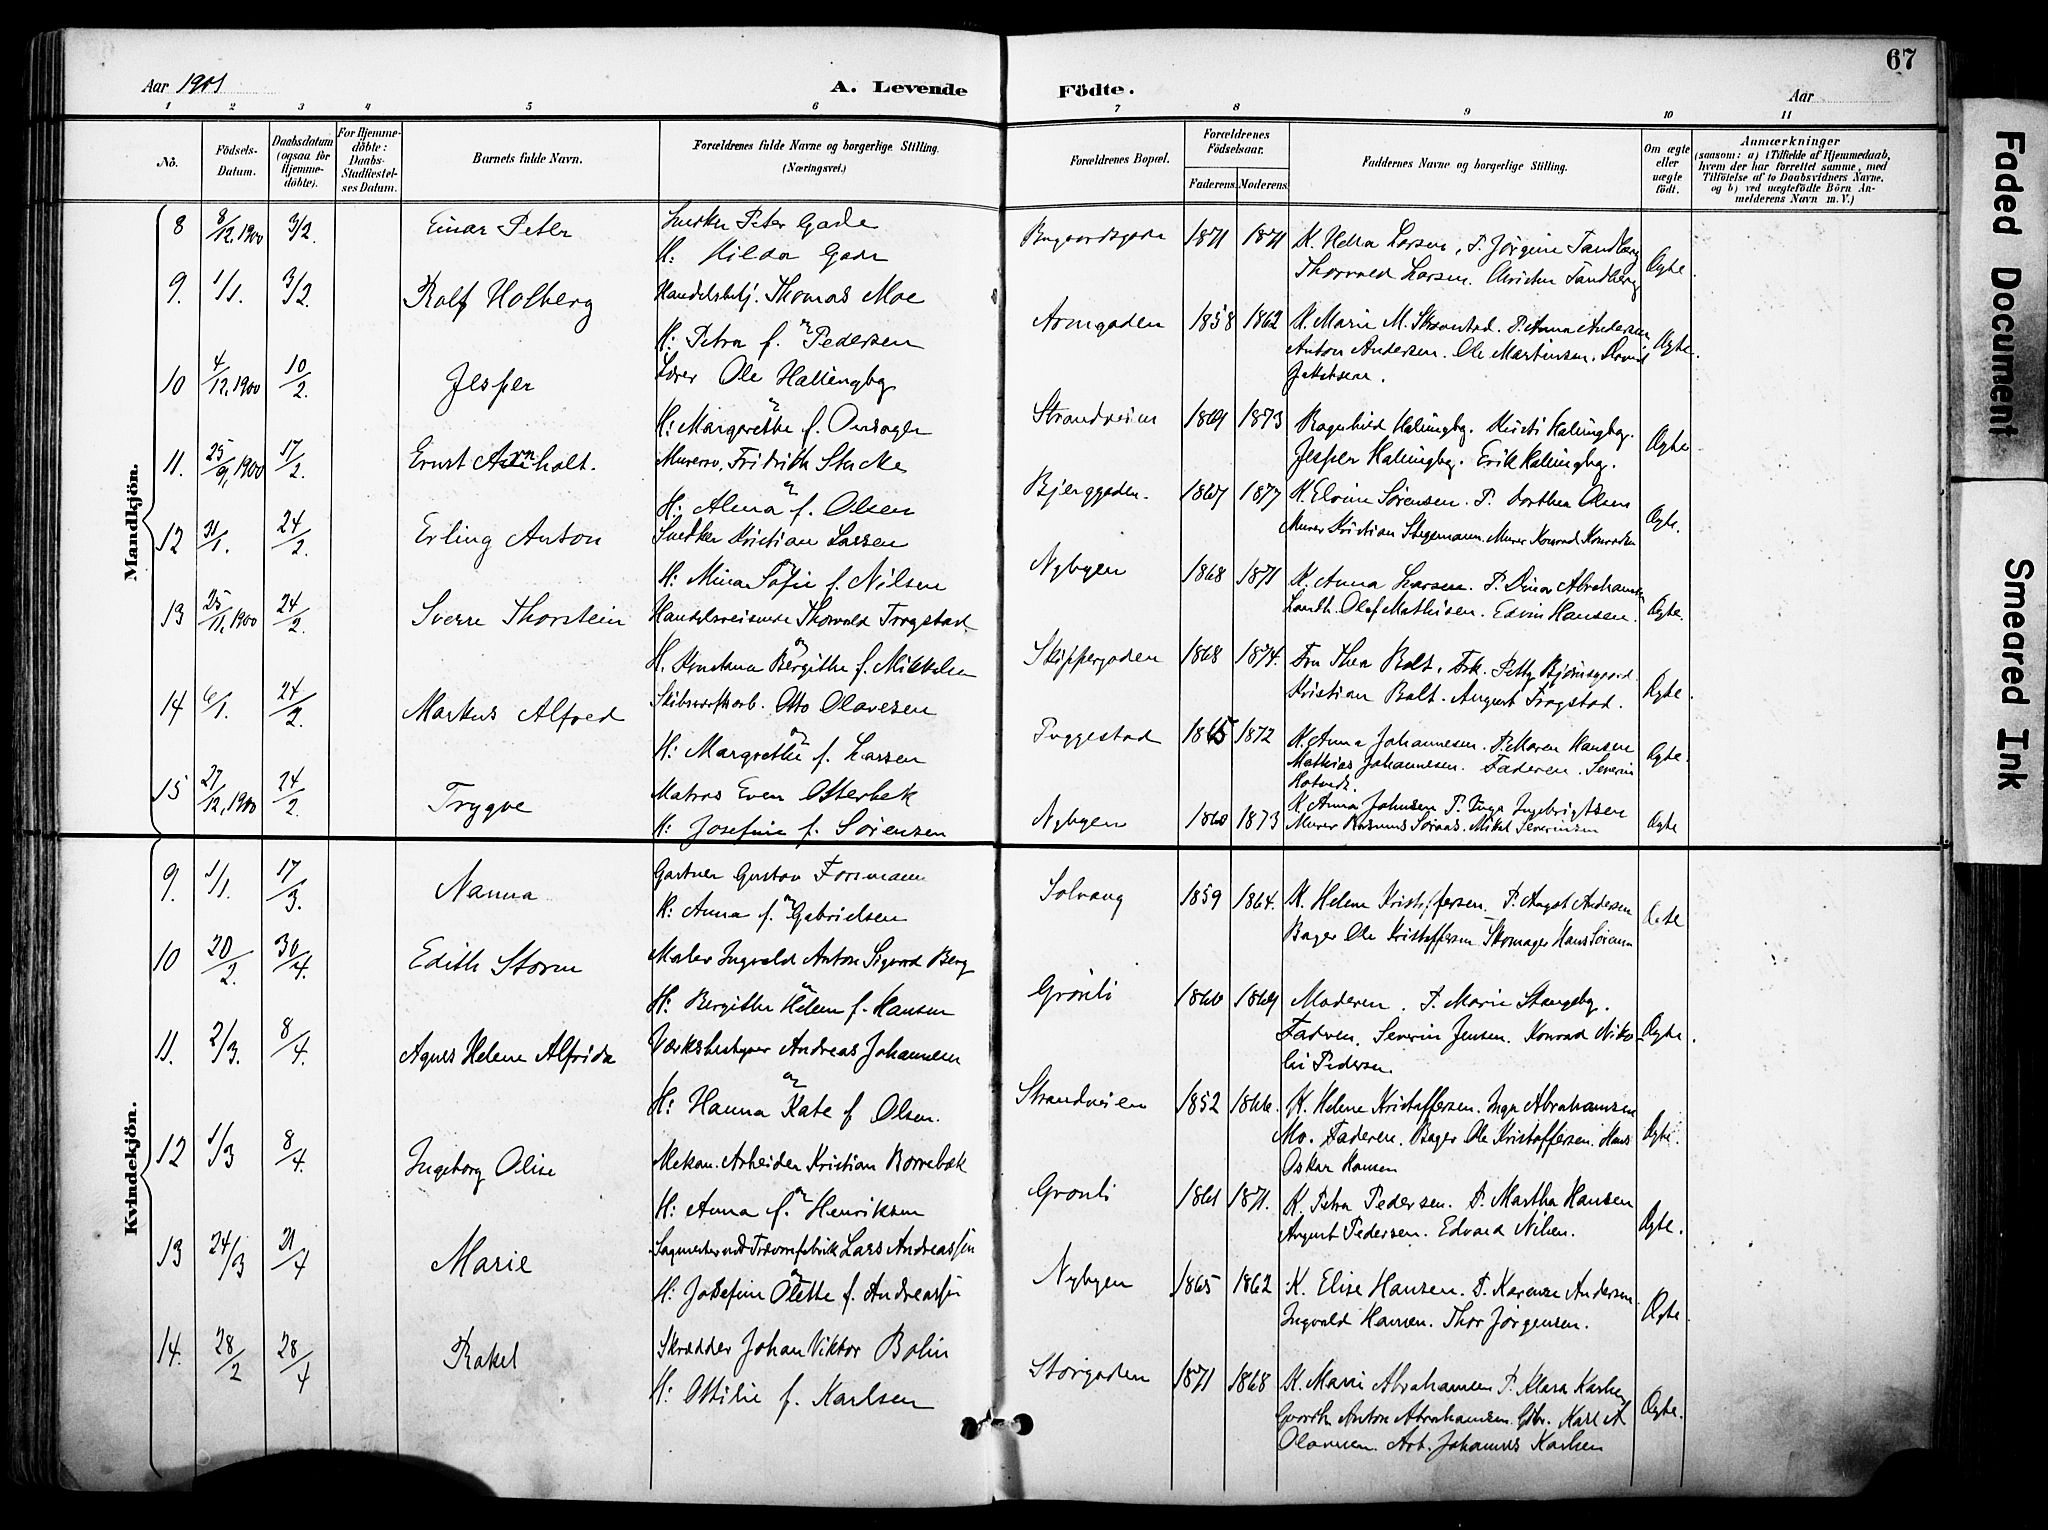 67
Aar 1901
A. Levende Födte.
Aar
1 2 3 4 5 6 7 8 9 10 11
No.
Födsels-Datum.
Daabsdatum (ogsaa för Hjemme-döbte).
For Hjemme-döbte: Daabs-Stadfestel-ses Datum.
Barnets fulde Navn.
Forældrenes fulde Navne og borgerlige Stilling. (Næringsvei.)
Forældrenes Bopæl.
Forældrenes Födselsaar.
Faderens. Moderens.
Faddernes Navne og borgerlige Stilling.
Om ægte eller uægte födt.
Anmærkninger
(saasom: a) i Tilfælde af Hjemmedaab, hvem der har forrettet samme, med Tilföielse af to Daabsvidners Navne, og b) ved uægtefödte Börn An-melderens Navn m. V.)
Mandkjön.
8 8/12, 1900 3/2. Einar Peter Snedker Peter Gade
H: Hilda Gade
1871 1871 K. Helra Larsen, P. Jørgine Sandberg
Thorvald Larsen. Sandberg Ægte.
9. 1/1. 3/2 Rolf Holberg Thomas Moe
H: Petra f. Pedersen
Armgaden 1858 1862 K. Marie M. P. Anna Andersen
Anton Andersen. Ole Martinsen. Ægte.
Jakobsen.
10 4/12, 1900 10/2. Jesper Lærer Ole Hallingby
H: Margrethe f. Onsager
Strandveien 1869 1873 Ragnhild Hallingby. Kristi Hallingby.
Jesper Hallingby. Erik Hallingby. Ægte
11. 25/9, 1900 17/2. Ernst Arnholt. Fridrik Stucke
H: Alma f. Olsen
Bjerggaden. 1867 1877 K. Elvine Sørensen. P. Dorthea Olsen
Murer Kristian Stegemann. Murer Konrad Konradsen Ægte.
12 31/1. 24/2. Erling Anton Snedker Kristian Larsen
H: Mina Sofie f. Nilsen
Nybyen 1868 1871 K. Anna Larsen. P. Dina Abrahamsen
Landh. Olaf Mathisen. Edvin Hansen. Ægte.
13 25/11, 1900 24/2. Sverre Thorstein Handelsreisende Thorvald Trogstad
H. Konstanse Bergithe f. Mikkelsen
Skippergaden 1868 1874. Fru Thea Bolt, Frk. Petty Bjørnsgaard.
Kristian Bolt. August Trogstad. Ægte.
14 6/1. 24/2. Markus Alfred Skibsværftsarb. Otto Olavesen
H: Margrethe f. Larsen
Tuggestad 1865 1872 K. Anna Johannesen. P. Maren Hansen
Mathias Johannesen. Faderen. Severin Ægte.
15 27/12, 1900 24/2. Trygve Matros Even Otterbek
H: Josefine f. Sørensen
Nybyen 1860 1873 K. Anna Johnsen P. Inga Ingebrigtsen
Murer Rasmus Mikal Severinsen Ægte
Kvindekjön.
9. 1/1. 17/3. Nanna Gartner Gustav Forsmann
H: Anna f. Gabrielsen
Solvang 1859 1864. K. Helene Kristoffersen. P. August Andersen
Bager Ole Kristoffersen Skomager Hans Sørensen Ægte
10 20/2. 30/4. Edith Storm Maler Ingvald Anton Sigvard Berg
H: Bergithe Helene f. Hansen
Grønli 1866 1869 Moderen. P. Marie Stangeby.
Faderen. Severin Jensen. Konrad Niko-
lai Pedersen. Ægte.
11. 2/3. 8/4. Agnes Helene Alfrida Værksbestyrer Andreas Johannesen
H: Hanna Kate f Olsen.
Strandveien 1852 1866. K. Helene Kristoffersen. Inga Abrahamsen
Mo. Faderen. Bager Ole Kristoffersen. Hans
Oskar Hansen Ægte.
12 1/3 8/4. Ingeborg Olise Mekan. Arbeider Kristian Borrebæk
H: Anna f. Henriksen
Grønli 1861 1871. K. Petra Pedersen. P. Martha Hansen
August Pedersen. Edvard Nilsen. Ægte.
13 24/3 21/4 Marie Sagmester ved Trævarefabrik Lars Andreassen
H: Josefine Olette f. Andreassen
Nybyen 1865 1862 K. Elise Hansen. P. Karense Andersen
Ingvald Hansen. Thor Jørgensen. Ægte.
14. 28/2 28/4 Rakel Skrædder Johan Viktor Bolin
H: Ottilie f. Karlsen
Storgaden 1871 1868 K. Marie Abrahamsen P. Klara Karlsen
Anton Abrahamsen. Karl A
Olavesen. Arb. Johannes Karlsen Ægte.
Faded Document
Smeared Ink